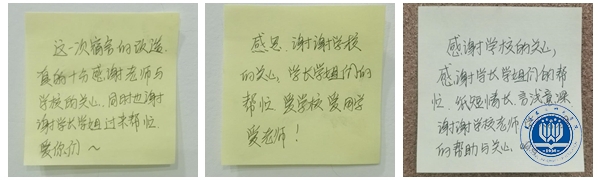 这一次宿舍的改造.
真的十分感谢老师与
学校的关心.同时也谢
谢学长学姐过来帮忙.
爱你们～
感恩.谢谢学校
的关心,学长学姐们的
帮忙 爱学校 爱同学
爱老师!
感谢学校的关心,
感谢学长学姐们的帮
忙.纸短情长.言浅意深
谢谢学校老师
的帮助与关心.